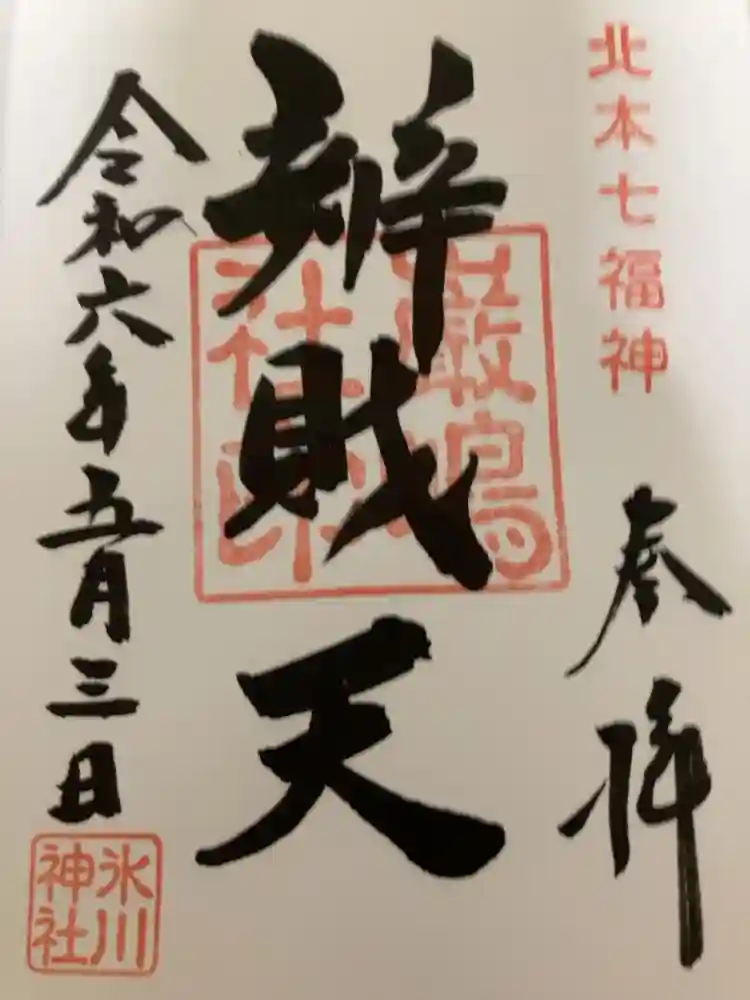 北本七福神
奉拝
辨財天
厳嶋
社印
令和六年五月三日
氷川
神社